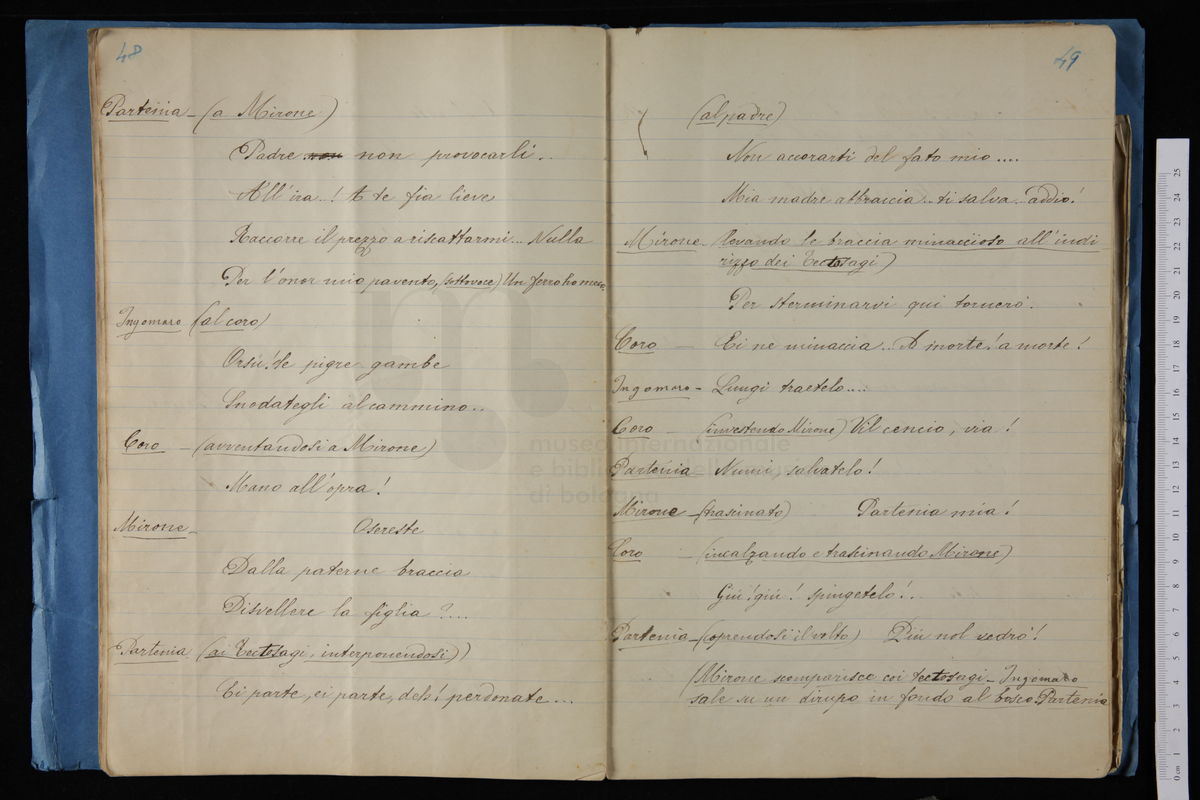 48
Partenia - (a Mirone)
Padre non non provocarli..
All'ira..! A te fia lieve
Raccorre il prezzo a riscattarmi... Nulla
Per l'onor mio pavento, (sottovoce) Un ferro ho meco.
Ingomaro (al coro)
Orsù! le pigre gambe
Snodategli al cammino..
Coro - (avventandosi a Mirone)
Mano all'opra!
Mirone -
Osereste
Dalla paterne braccia
Disvellere la figlia?....
Partenia (ai Tectosagi, interponendosi))
Ei parte, ei parte, deh! perdonate...
49
(al padre)
Non accorarti del fato mio....
Mia madre abbraccia.. ti salva.. addio!
Mirone (levando le braccia minaccioso all'indi
rizzo dei Tectosagi)
Per sterminarvi qui tornerò.
Coro - Ei ne minaccia.. A morte! a morte!
Ingomaro - Lungi traetelo....
Coro - (investendo Mirone) Vil cencio, via!
Partenia Numi, salvatelo!
Mirone - (trascinato) Partenia mia!
Coro - (incalzando e trascinando Mirone)
Giù! giù! spingetelo!..
Partenia - (coprendosi il volto) Più nol vedrò!
(Mirone scomparisce coi tectosagi - Ingomaro
sale su un dirupo in fondo al bosco. Partenia
museo internazionale
e biblioteca della musica
di bologna